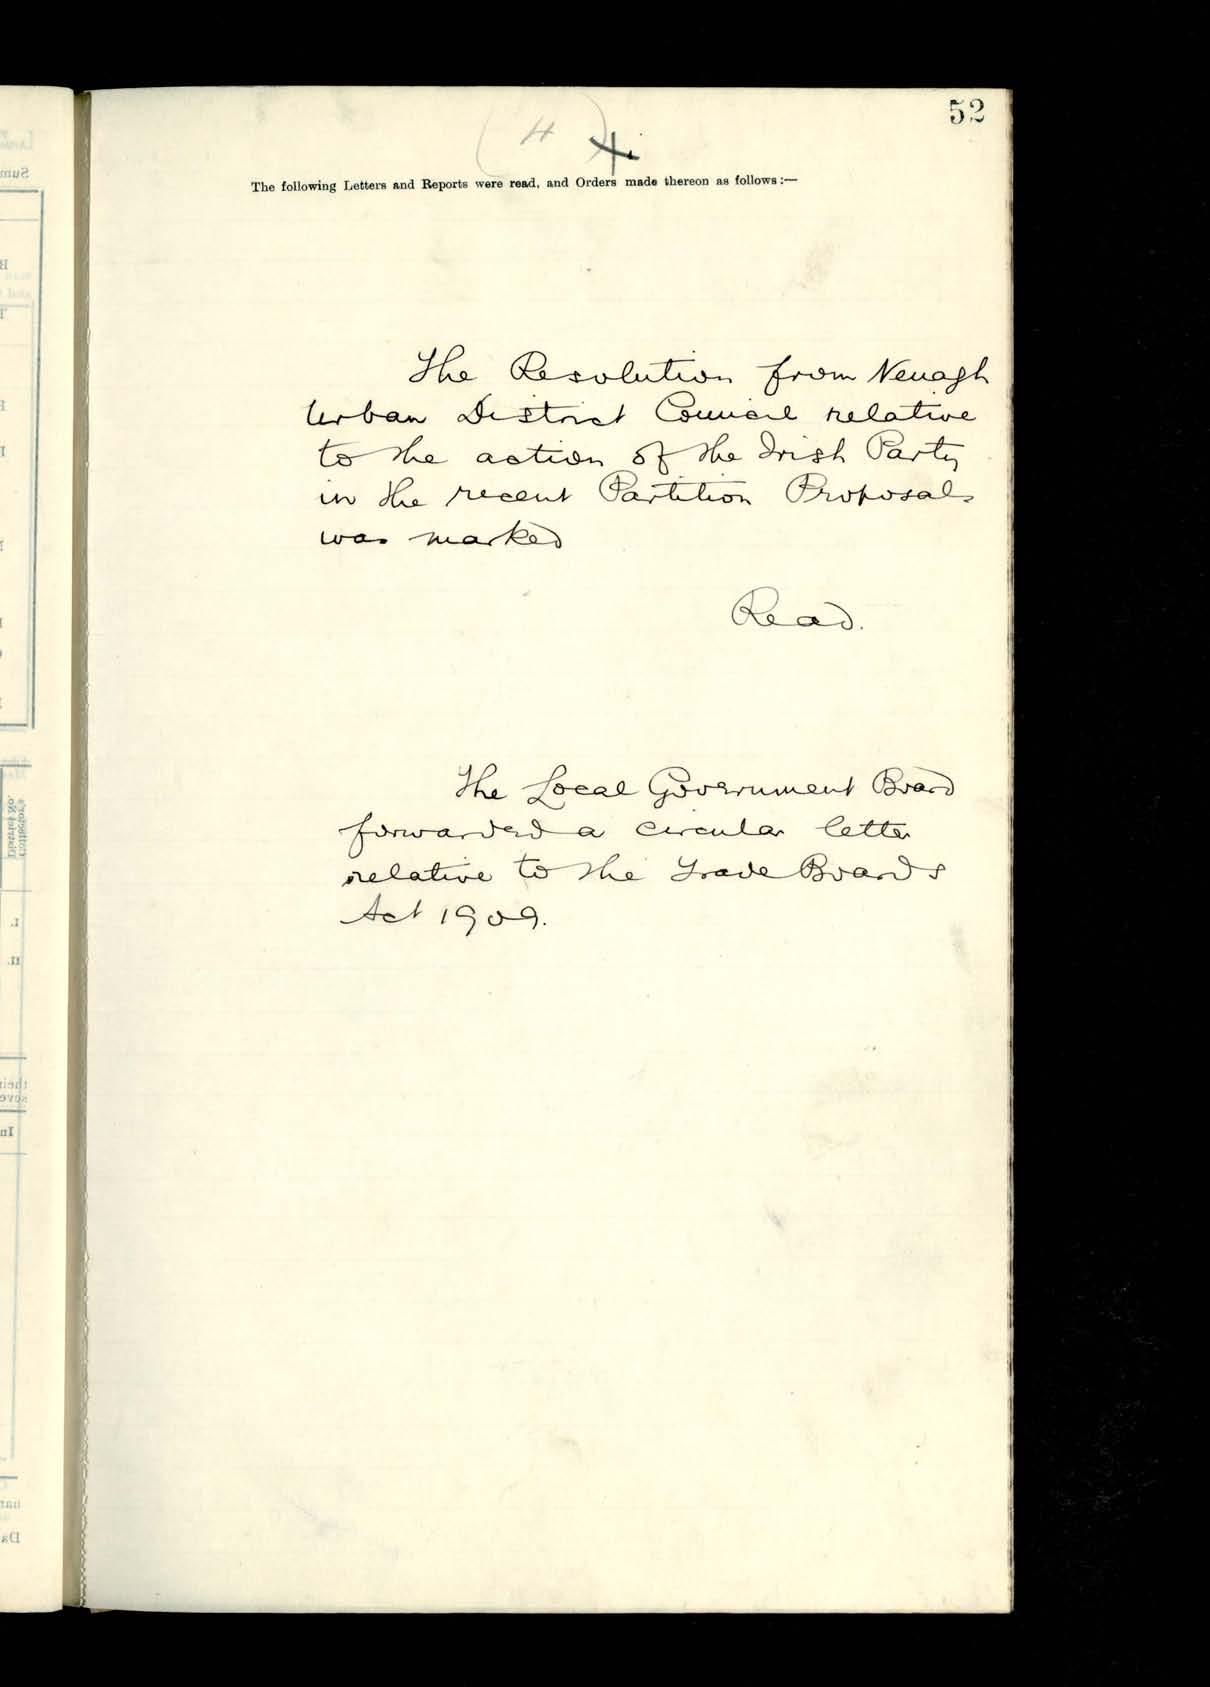 52
( 4 ) 4.
The following Letters and Reports were read, and Orders made thereon as follows :—
The Resolution from Nenagh
Urban District Council relative
to the action of the Irish Party
in the recent Partition Proposals
was marked
Read.
The Local Government Board
forwarded a circular letter
relative to the Trade Boards
Act 1909.